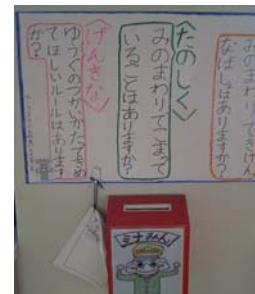 みのまわりできけん
なばしょはありますか?
〈たのしく〉
みのまわりでこまって
いることはありますか?
〈げんきな〉
ゆうぐのつかいかたできめ
てほしいルールはあります
か?